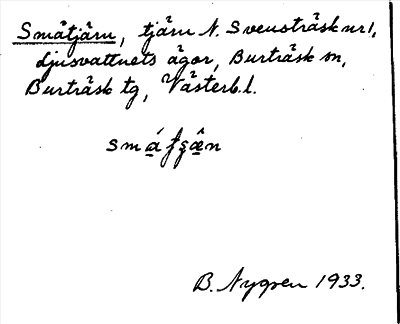 Småtjärn, tjärn N. Svensträsk nr 1,
Ljusvattnets ägor, Burträsk sn,
Burträsk tg, Västerb. l.
B. Nygren 1933.